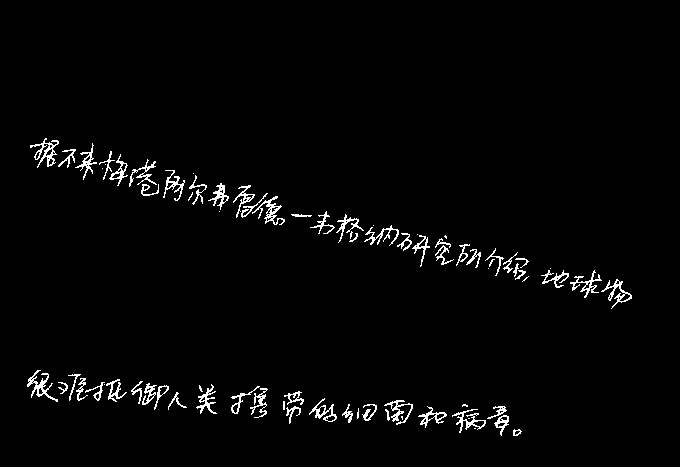 据不来梅港阿尔弗雷德一韦格纳研究所介绍,地球物
很难抵御人类携带的细菌和病毒。